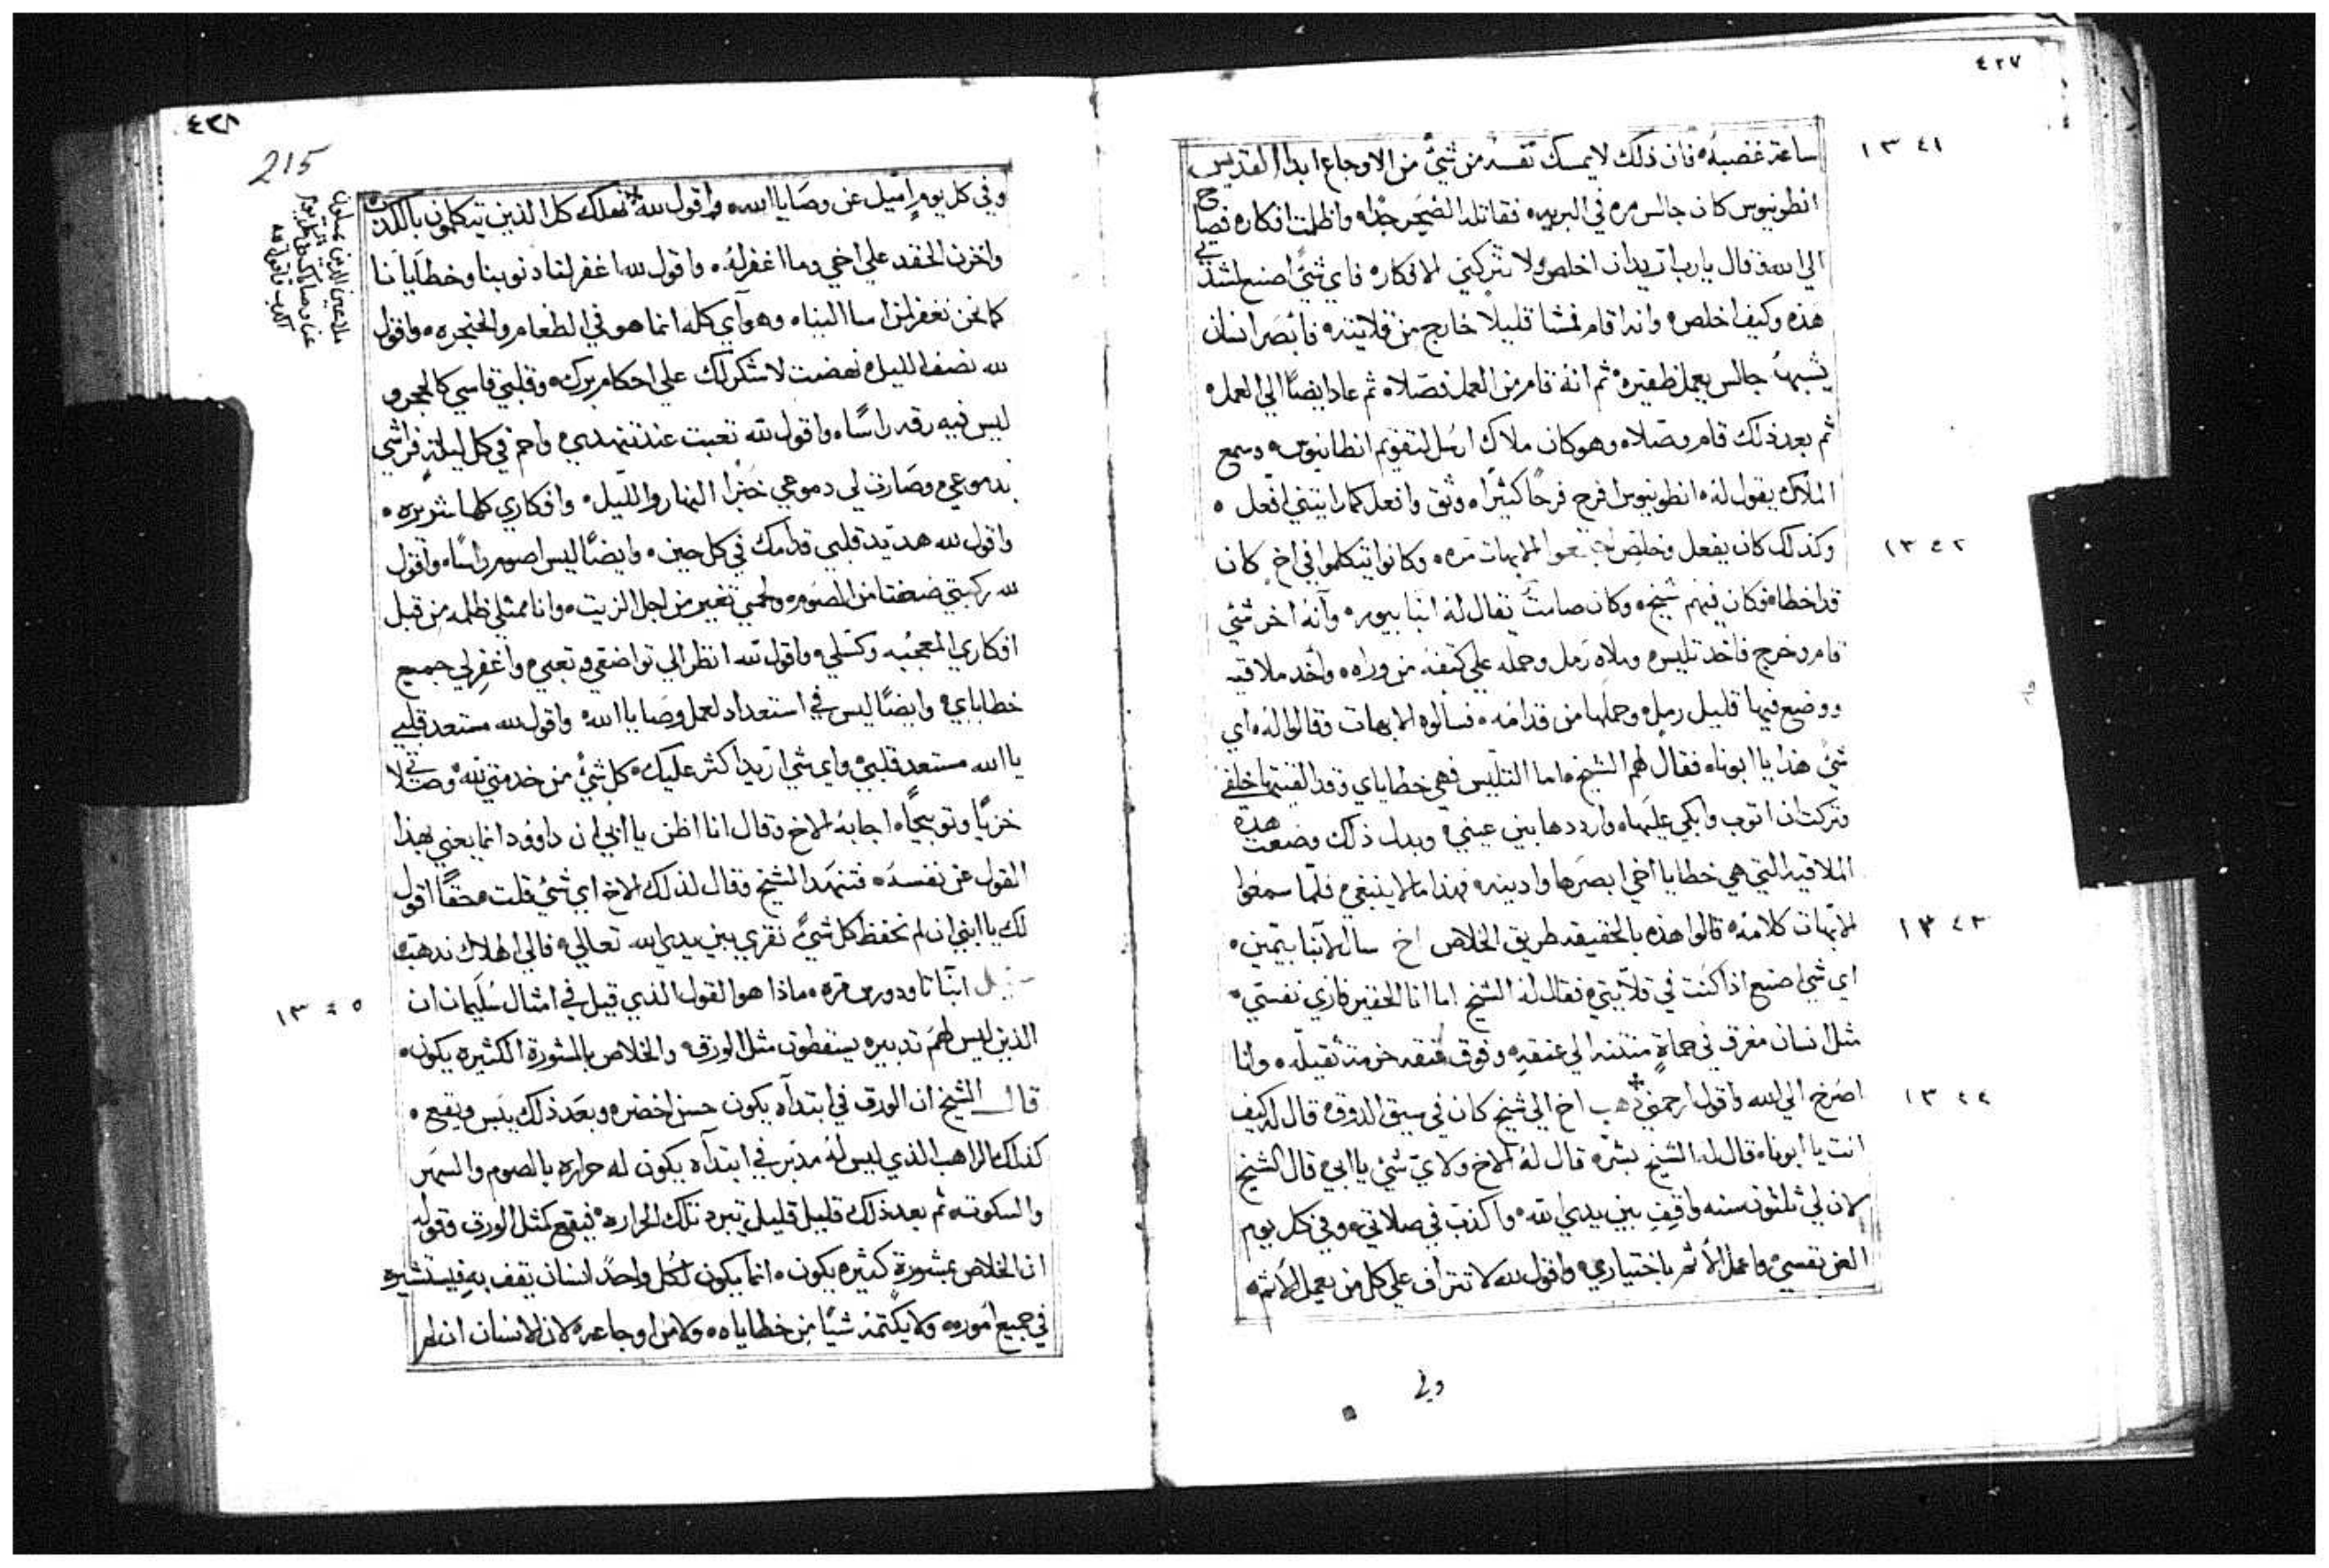 ٤٢٧
١٣٤١
ساعة غضبه فان ذلك لا يمسك نفسه من شيئ من الاوجاع ابدا القديس
انطونيوس كان جالس مره في البريه فقاتله الضجر جدا واظلمت افكاره فصاح
الي الله وقال يارب اريد ان اخلص ولا تتركني الافكار فاي شيئ اصنع لشدتي
هذه وكيف اخلص وانه اقام تمشا قليلا خارج من قلايته فابصر انسان
يشبهه جالس يعمل ظفيره ثم انه قام من العمل فصلا ثم عاد ايضًا الي العمل
ثم بعد ذلك قام وصلا وهو كان ملاك ارسل لتقويم انطانيوس وسمع
الملاك يقول له انطونيوس افرح فرحًا كثيرا وثق وافعل كما رايتني افعل
١٣٤٢
وكذلك كان يفعل وخلص اجتمعوا الابهات مره وكانوا يتكلموا في اخ كان
قد اخطا فكان فيهم شيخ وكان صامت يقال له انبا بيور وانه اخر شئ
قام وخرج فاخد تليس وملاه رمل وحمله علي كتفه من وراه واخد ملاقيه
ووضع فيها قليل رمل وحملها من قدامه فسالوه الابهات وقالوا له اي
شئ هذا يا ابوناه فقال لهم الشيخ اما التليس فهي خطاياي وقد القيتها خلفي
وتركت ان اتوب وابكي عليها وارددها بين عيني وبدل ذلك وضعت هذه
الملاقيه التي هي خطايا اخي ابصرها وادينه فهذا ما لا ينبغي فلما سمعوا
١٣٤٣
الابهات كلامه قالوا هذه بالحقيقه طريق الخلاص اخ سال الانبا بيمين
اي شئ اصنع اذا كنت في قلايتي فقال له الشيخ اما انا الحقير فاري نفسي
مثل انسان مغرق في حماة منتنه الي عنقه وفوق عنقه خزمة ثقيله وانا
١٣٤٤
اصرخ الي الله واقول ارحمني ذهب اخ الي شيخ كان في سيق الدوق قال له كيف
انت يا ابوناه قال له الشيخ بشر قال له الاخ ولاي شئ يا ابي قال الشيخ
لان لي ثلثون سنه واقف بين يدي الله واكذب في صلاتي وفي كل يوم
العن نفسي واعمل الاثم باختياري واقول لله لا تتراف علي كل من يعمل الاثم
وفي
٤٢٨
215
وفي كل يوم اميل عن وصايا الله واقول لله تهلك كل الذين يتكلمون بالكذب
واخزن الحقد علي اخي وما اغفر له واقول لله اغفر لنا دنوبنا وخطايانا
كما نحن نغفر لمن اسا الينا وهو آي كله انما هو في الطعام والحنجره واقول
لله نصف الليل نهضت لاشكرك علي احكام برك وقلبي قاسي كالحجر و
ليس فيه رقه راسًا واقول لله تعبت عند تنهدي واحم في كل ليلة فراشي
بدموعي وصارت لي دموعي خبزا النهار والليل وافكاري كلها شريره
واقول لله هديد قلبي قدامك في كل حين وايضًا ليس اصوم راسًا واقول
لله ركبتي ضعفتا من الصوم ولحمي تغير من اجل الزيت وانا ممتلي ظلمه من قبل
افكاري المعجبه وكسلي واقول لله انظر الي تواضعي وتعبي واغفر لي جميع
خطاياي وايضًا ليس في استعداد لعمل وصايا الله واقول لله مستعد قلبي
يا الله مستعد قلبي واي شئ ازيد اكثر عليك كل شئ من خدمتي لله وصلاتي
خزيًا وتوبيخًا اجابه الاخ وقال انا اظن يا ابي ان داوود انما يعني بهذا
القول عن نفسه فتنهد الشيخ وقال لذلك الاخ اي شئ قلت حقًا اقول
لك يا ابني ان لم نحفظ كل شئ نقري بين يدي الله تعالي فالي الهلاك ندهب
١٣٤٥
سيل انبا تاودورس مره ماذا هو القول الذي قيل في امثال سليمان ان
الذين ليس لهم تدبير يسقطون مثل الورق والخلاص بالمشورة الكثيره يكون
قال الشيخ ان الورق في ابتداه يكون حسن اخضر وبعد ذلك يبس ويقع
كذلك الراهب الذي ليس له مدبر في ابتداه يكون له حراره بالصوم والسهر
والسكوت ثم بعد ذلك قليل قليل تبرد تلك الحراره فيقع كمثل الورق وقوله
ان الخلاص بمشورة كثيره يكون انما يكون لكل واحد انسان يقف به فيستشيره
في جميع اموره ولا يكتمه شيًا من خطاياه ولا من اوجاعه لان الانسان ان لم